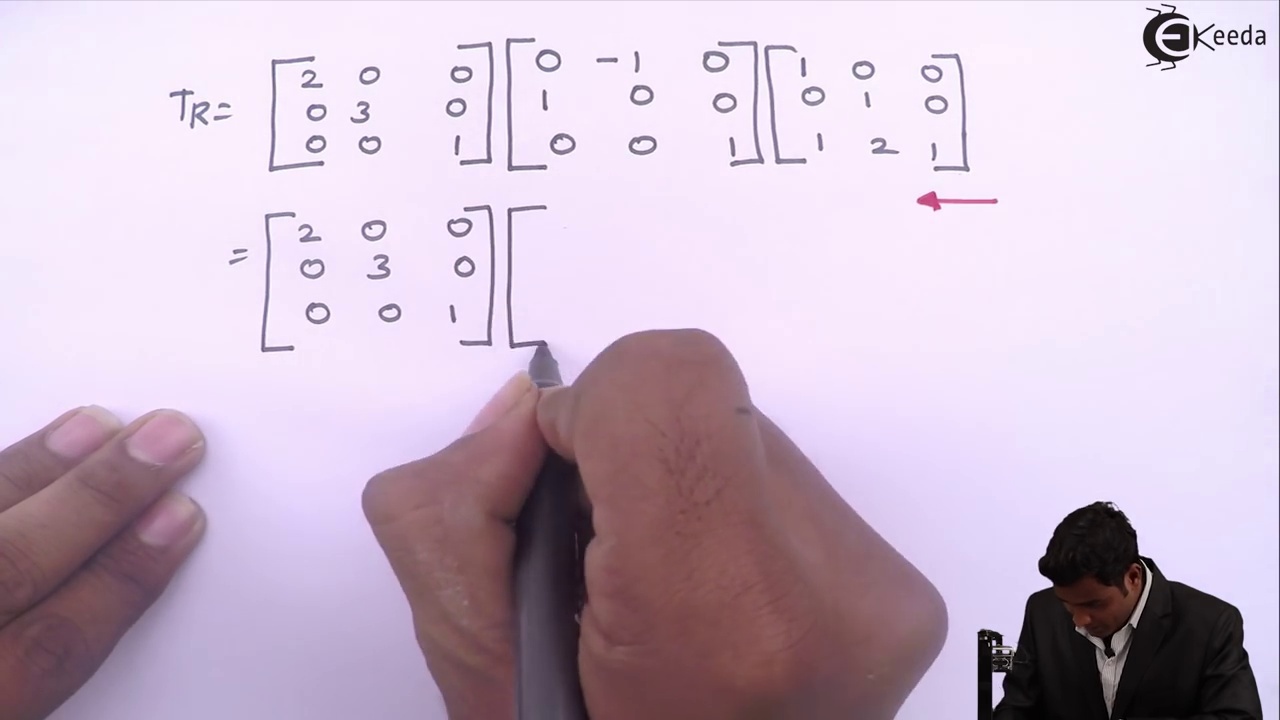 EKeeda
TR = [ 2 0 0 ] [ 0 -1 0 ] [ 1 0 0 ]
[ 0 3 0 ] [ 1 0 0 ] [ 0 1 0 ]
[ 0 0 1 ] [ 0 0 1 ] [ 1 2 1 ]
= [ 2 0 0 ] [
[ 0 3 0 ] [
[ 0 0 1 ] [